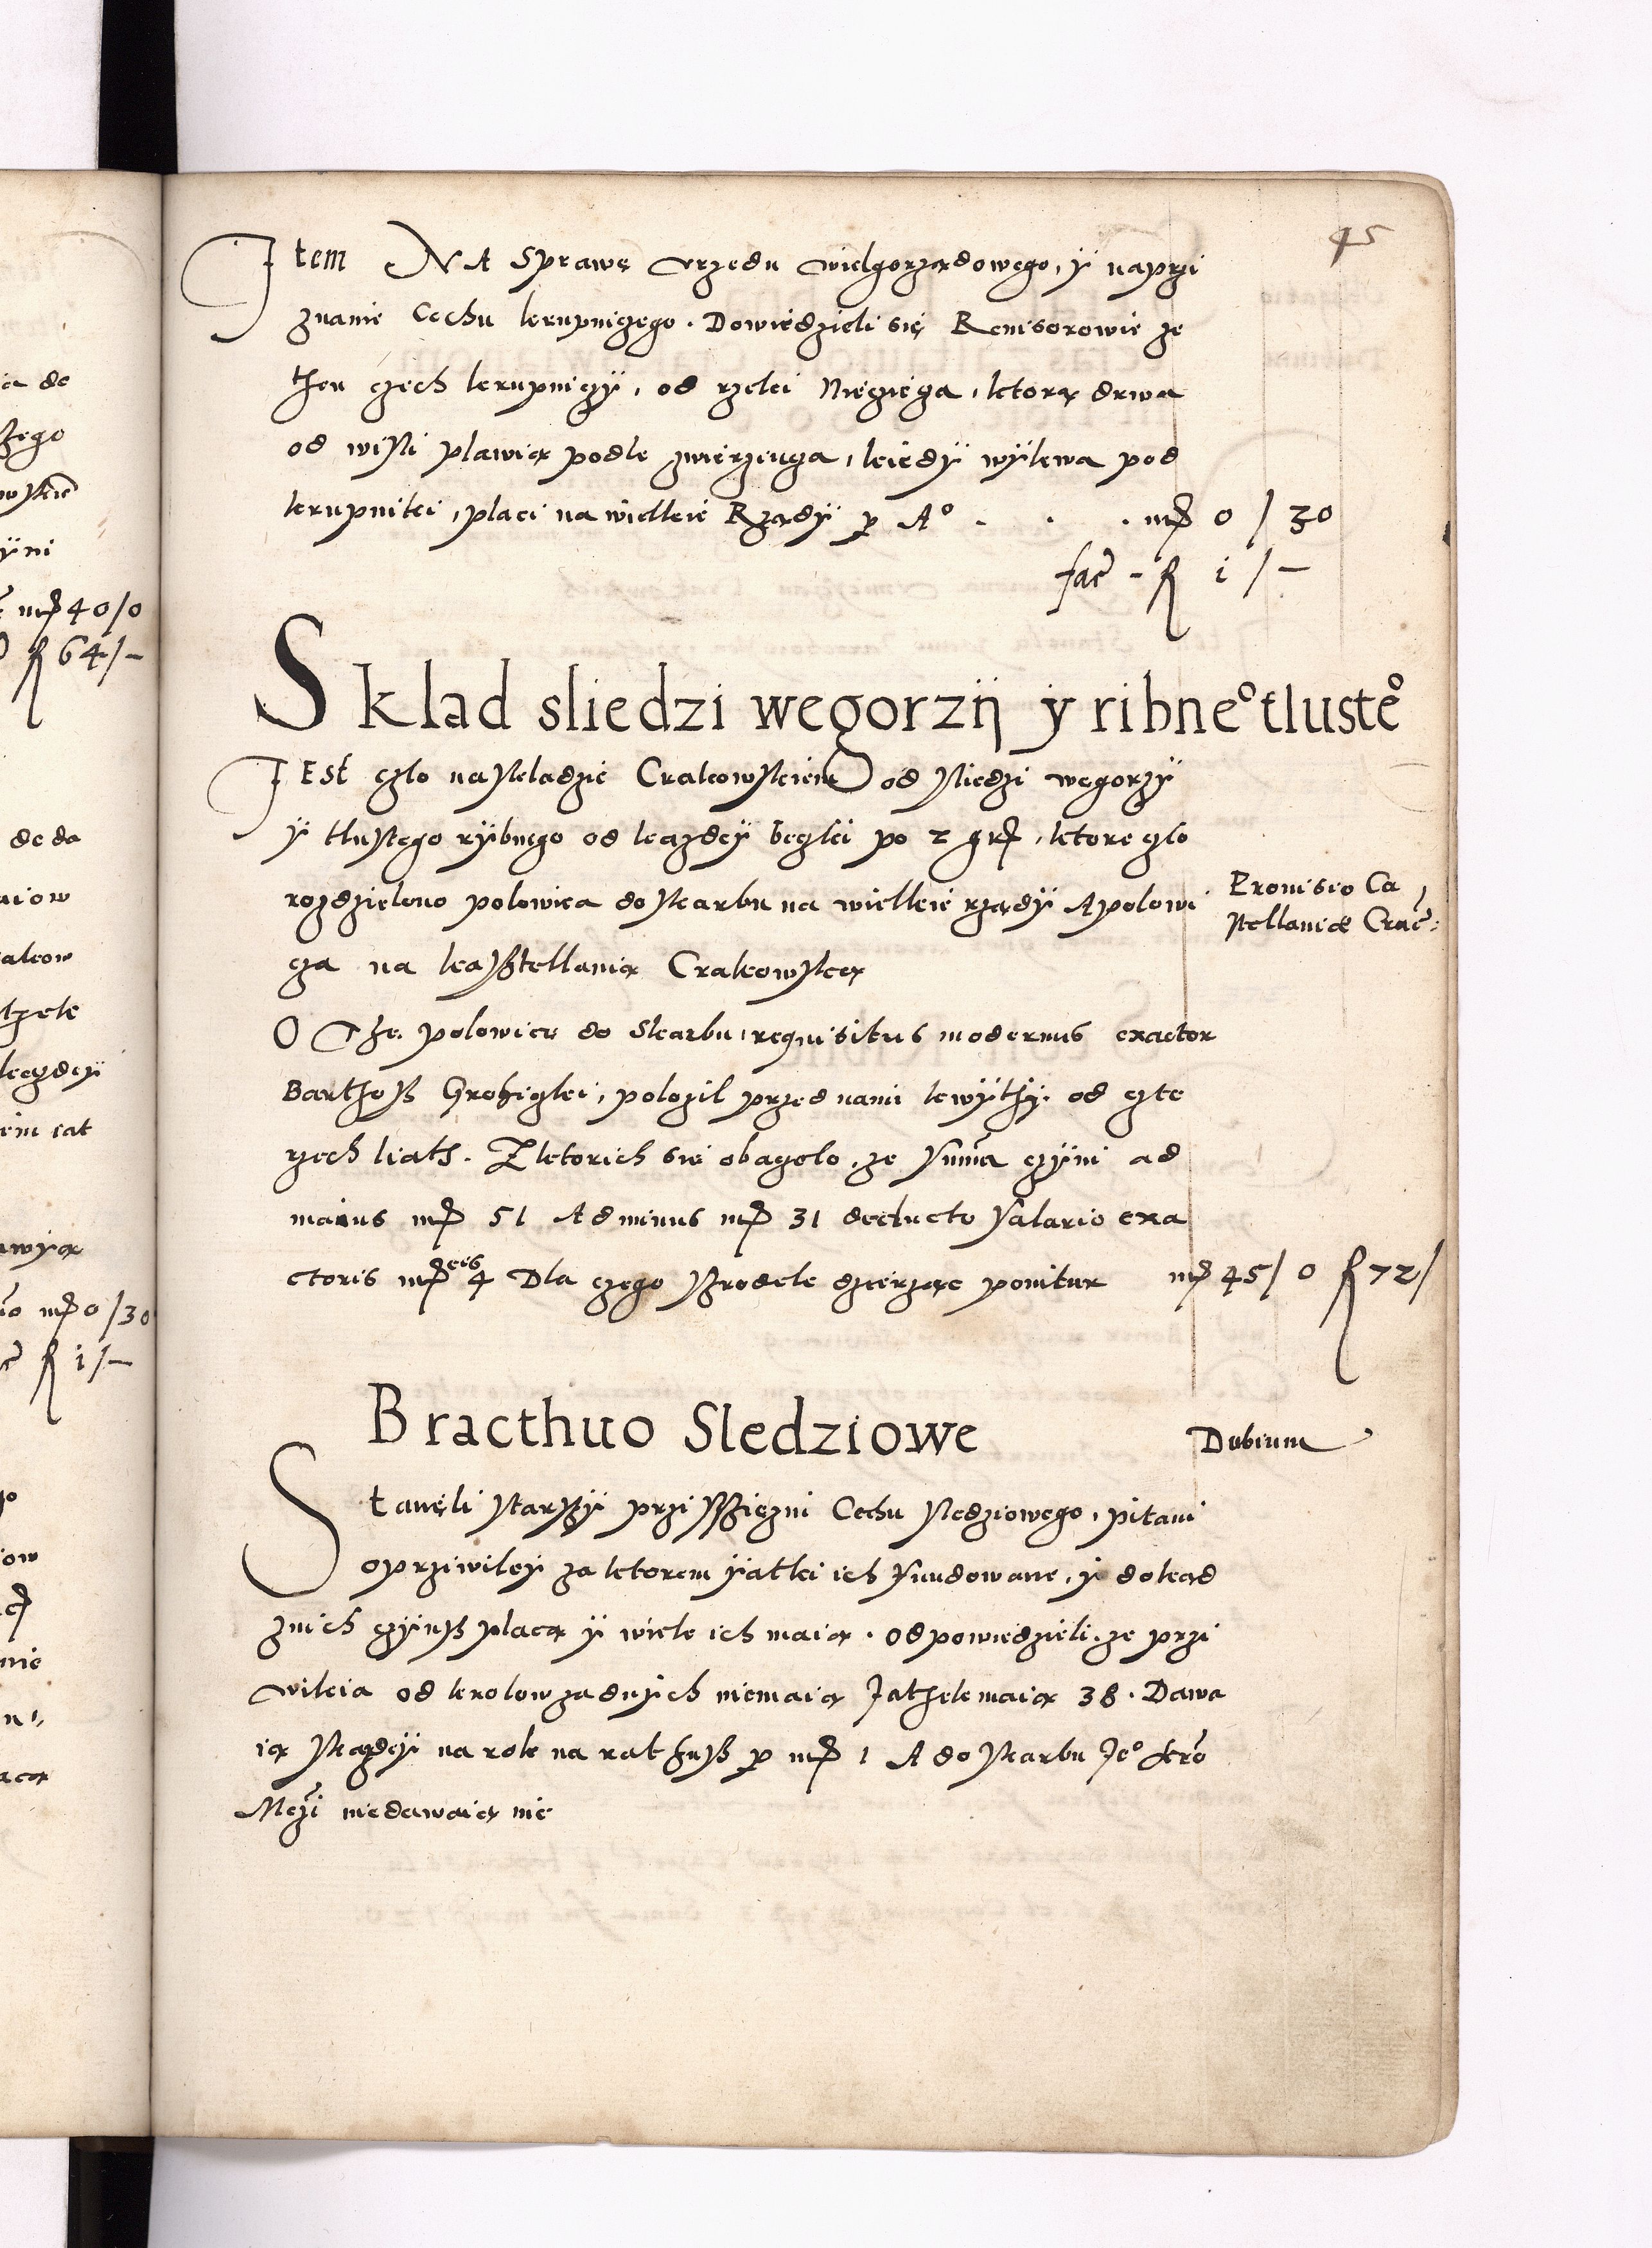 45
Item NA Sprawę vrzędu wielgorządowego, y naprzi
znanie Cechu krupniczego. Dowiedzieli się Reuisorowie ze
then czech krupniczÿ, od rzeki Nieczieċza, ktorą drwa
od wisli plawią podle zwierzincza, kiedÿ wÿlewa pod
krupniki, placi na wielkie Rządÿ p Aº . . . mrc 0 / 30
fac̃ - fl 1 / -
Sklad sliedzi wegorzij y ribneº tlusteº
IEst czlo na skladzie Crakowskiem od sliedzi węgorzÿ
ÿ tlustego rÿbnego od kazdeÿ beczki po 2 gr, ktore czlo
rozdzielono polowica do skarbu na wielkie rządÿ A polowi
cza na kaßtellanią Crakowską
Prouisio Ca
stellaniæ Crac̃:
O The polowicę do Skarbu, requisitus modernus exactor
Barthoß Grohiczki, polozil przed nami kwÿthÿ od czte
rzech liath. Z ktorich się obaczÿlo, ze summa czÿni ad
maius mrc 51 Ad minus mrc 31 deducto salario exa
ctoris mrc eis 4 Dla czego szrodek dzierząc ponitur mrc 45 / 0 fl 72 /
Bracthuo Sledziowe
Dubium
Stanęli starßÿ przißięzni Cechu sledziowego, pitani
o prziwileÿ za ktorem ÿatki ich fundowane, ÿ dokąd
znich czÿnß placą ÿ wiele ich maią. Odpowiedzieli, ze przi
wileia od krolow zadnÿch niemaią Jathek maią 38. Dawa
ią s kazdeÿ na rok na rathuß p mrc 1 A do skarbu Jeº Kro̅
Mczi niedawaią nic